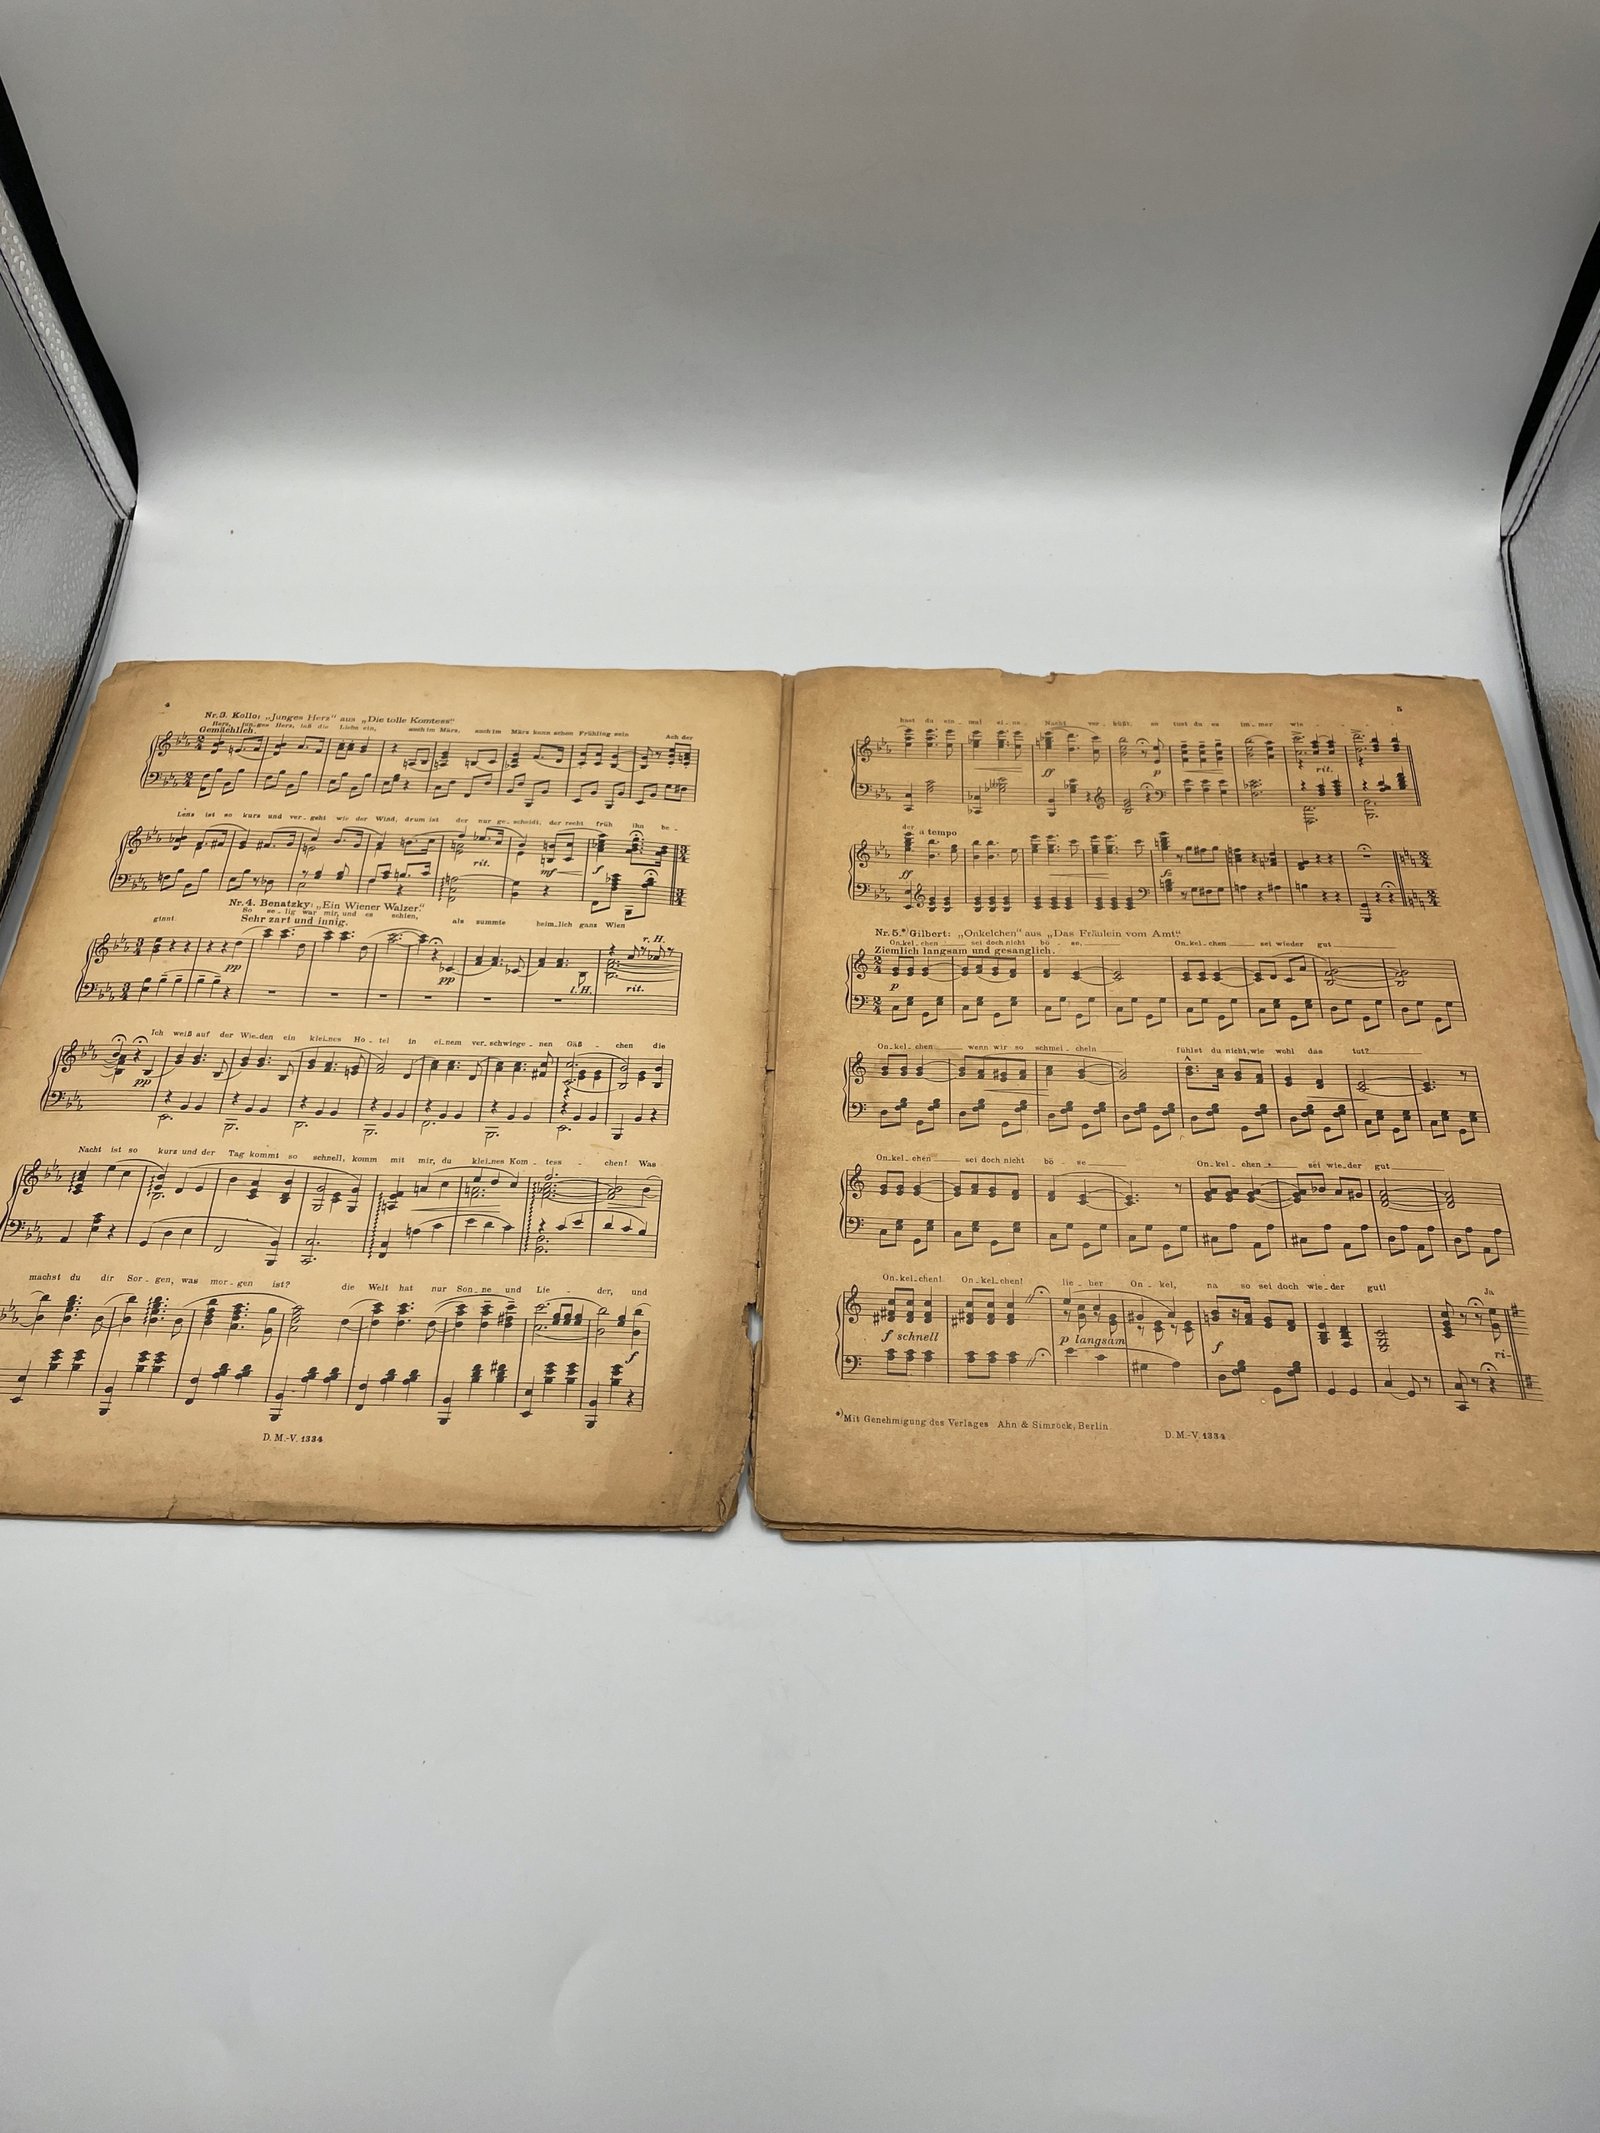 4
Nr. 3. Kollo: „Junges Herz" aus „Die tolle Komtess"
Herz, jun-ges Herz, laß die Liebe ein, auch im März, auch im März kann schon Frühling sein Ach der
Gemächlich.
Lenz ist so kurz und ver-geht wie der Wind, drum ist der nur ge-scheidt, der recht früh ihn be-
rit. mf f
Nr. 4. Benatzky: „Ein Wiener Walzer."
ginnt. So se-lig war mir, und es schien, als summte heim-lich ganz Wien
Sehr zart und innig.
r. H.
pp pp l. H. rit.
Ich weiß auf der Wie-den ein klei-nes Ho-tel in ei-nem ver-schwiege-nen Gäß-chen die
pp
Nacht ist so kurz und der Tag kommt so schnell, komm mit mir, du klei-nes Kom-tess-chen! Was
machst du dir Sor-gen, was mor-gen ist? die Welt hat nur Son-ne und Lie-der, und
f
D. M.-V. 1334
5
hast du ein-mal ei-ne Nacht ver-küßt, so tust du es im-mer wie-
ff p rit.
der a tempo
ff
Nr. 5.*) Gilbert: „Onkelchen" aus „Das Fräulein vom Amt."
On-kel-chen sei doch nicht bö-se, On-kel-chen sei wieder gut
Ziemlich langsam und gesanglich.
p
On-kel-chen wenn wir so schmei-cheln fühlst du nicht, wie wohl das tut?
On-kel-chen sei doch nicht bö-se On-kel-chen sei wie-der gut
On-kel-chen! On-kel-chen! lie-ber On-kel, na so sei doch wie-der gut! Ja
f schnell p langsam f ri-
*) Mit Genehmigung des Verlages Ahn & Simrock, Berlin
D. M.-V. 1334